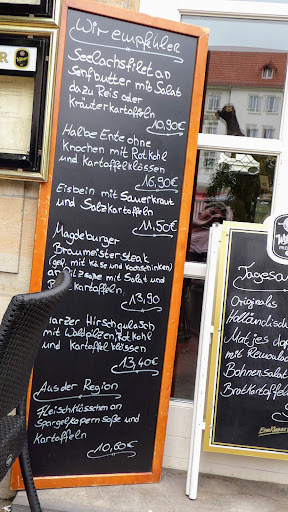 Wir empfehlen
Seelachsfilet an
Senfbutter mit Salat
dazu Reis oder
Kräuterkartoffeln
10,90€
Halbe Ente ohne
Knochen mit Rotkohl
und Kartoffelklössen
16,90€
Eisbein mit Sauerkraut
und Salzkartoffeln
11,50€
Magdeburger
Braumeistersteak
(gef. mit Käse und Kochschinken)
mit Salat und
kartoffeln.
13,90
Harzer Hirschgulasch
mit Waldpilzen, Rotkohl
und Kartoffelklössen
13,40€
Aus der Region
Fleischklösschen an
Spargelkapern Soße und
Kartoffeln
10,60€
Tagesan
Originals
Holländisch
Matjes
mit
Bohnensalat
Bratkartoffel